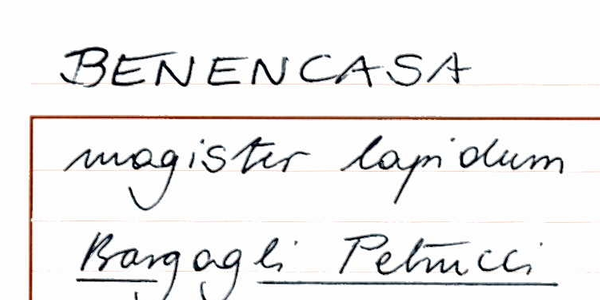 BENENCASA
magister lapidum
Bargagli Petrucci